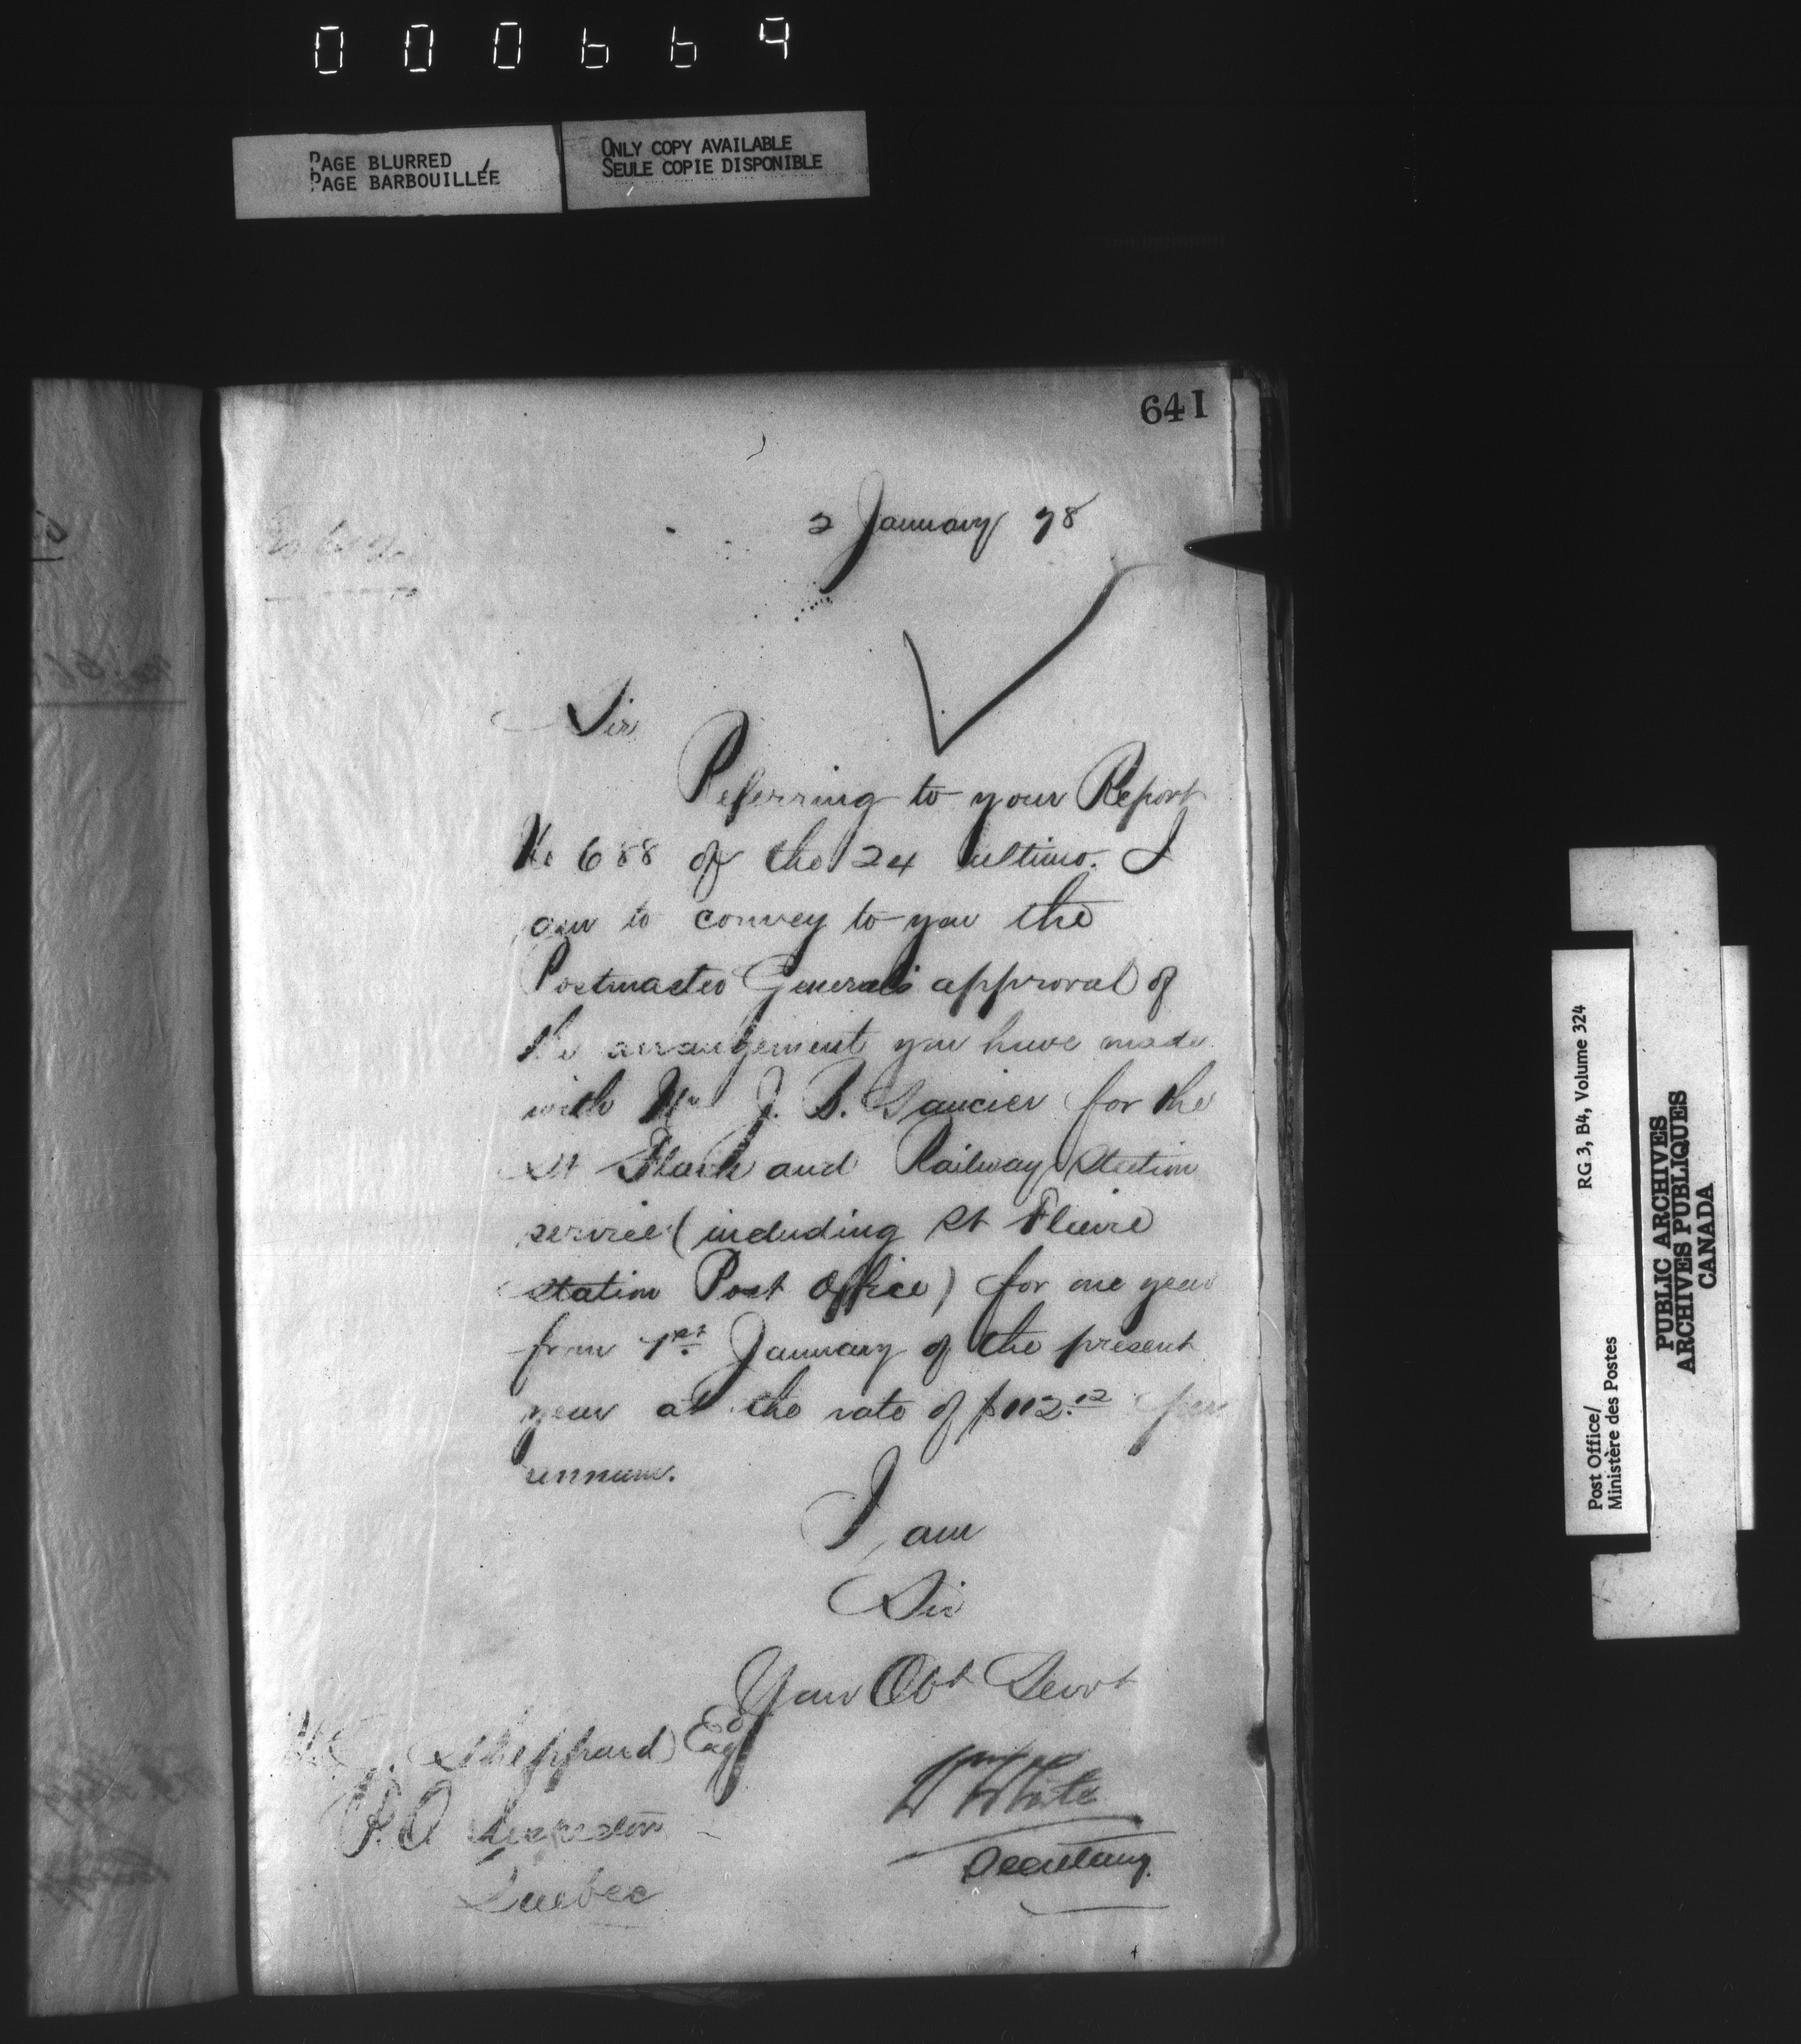 000669
PAGE BLURRED
PAGE BARBOUILLÉE
ONLY COPY AVAILABLE
SEULE COPIE DISPONIBLE
641
2 January 78
Sir
Referring to your Report
No 688 of the 24 ultimo. I
am to convey to you the
Postmaster General's approval of
the arrangement you have made
with Mr J. B. Saucier for the
St Flavie and Railway Station
service (including St Flavie
Station Post Office) for one year
from 1st January of the present
year at the rate of $112.12 per
annum.
I am
Sir
Your Obt Servt
Sheppard Esq
P.O Inspector
Quebec
Wm White
Secretary.
RG 3, B4, Volume 324
Post Office/
Ministère des Postes
PUBLIC ARCHIVES
ARCHIVES PUBLIQUES
CANADA